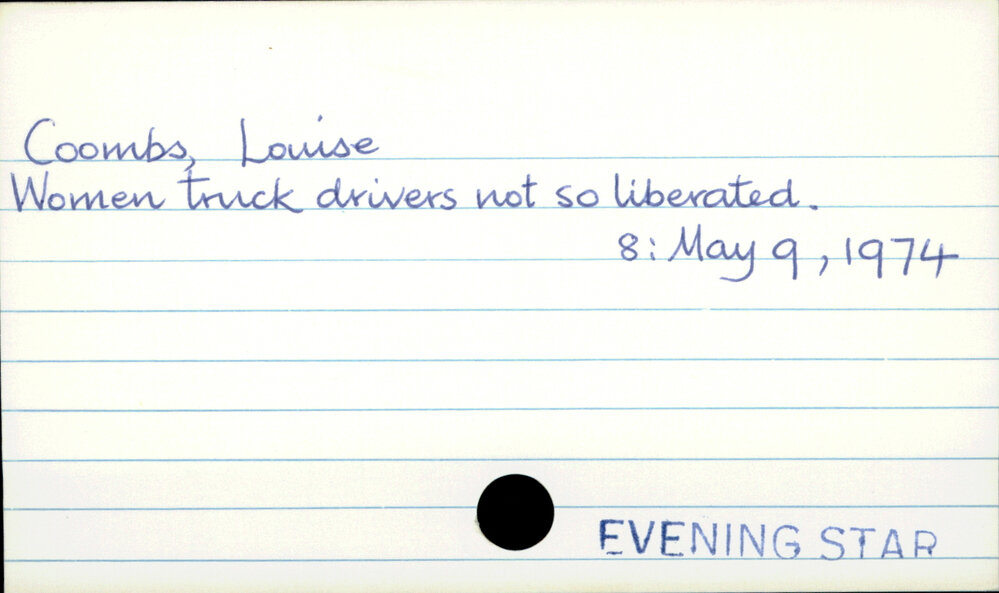 Coombs, Louise
Women truck drivers not so liberated.
8: May 9, 1974
EVENING STAR